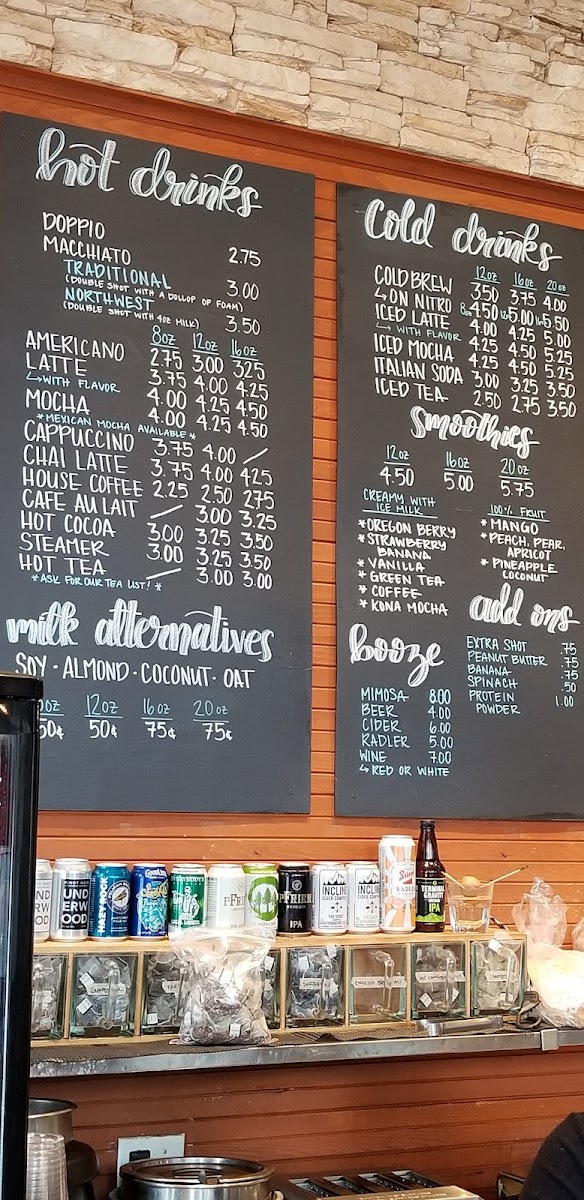 hot drinks
DOPPIO
MACCHIATO 2.75
TRADITIONAL 3.00
(DOUBLE SHOT WITH A DOLLOP OF FOAM)
NORTHWEST 3.50
(DOUBLE SHOT WITH 4OZ MILK)
8oz 12oz 16oz
AMERICANO 2.75 3.00 3.25
LATTE 3.75 4.00 4.25
↳WITH FLAVOR 4.00 4.25 4.50
MOCHA 4.00 4.25 4.50
*MEXICAN MOCHA AVAILABLE*
CAPPUCCINO 3.75 4.00 /
CHAI LATTE 3.75 4.00 4.25
HOUSE COFFEE 2.25 2.50 2.75
CAFE AU LAIT / 3.00 3.25
HOT COCOA 3.00 3.25 3.50
STEAMER 3.00 3.25 3.50
HOT TEA / 3.00 3.00
*ASK FOR OUR TEA LIST!*
milk alternatives
SOY · ALMOND · COCONUT · OAT
oz 12oz 16oz 20oz
50¢ 50¢ 75¢ 75¢
Cold drinks
12oz 16oz 20oz
COLD BREW 3.50 3.75 4.00
↳ ON NITRO 4.50 5.00 5.50
ICED LATTE 4.00 4.25 5.00
↳ WITH FLAVOR 4.25 4.50 5.25
ICED MOCHA 4.25 4.50 5.25
ITALIAN SODA 3.00 3.25 3.50
ICED TEA 2.50 2.75 3.50
Smoothies
12oz 16oz 20oz
4.50 5.00 5.75
CREAMY WITH
ICE MILK
*OREGON BERRY
*STRAWBERRY
BANANA
*VANILLA
*GREEN TEA
*COFFEE
*KONA MOCHA
100% FRUIT
*MANGO
*PEACH, PEAR,
APRICOT
*PINEAPPLE
COCONUT
booze
MIMOSA 8.00
BEER 4.00
CIDER 6.00
RADLER 5.00
WINE 7.00
↳ RED OR WHITE
add ons
EXTRA SHOT .75
PEANUT BUTTER .75
BANANA .75
SPINACH .50
PROTEIN 1.00
POWDER
UND
ERW
OOD
PFRIEM
PFRIEM
IPA
INCLINE
CIDER COMPANY
INCLINE
CIDER COMPANY
Stiegl
RADLER
IPA